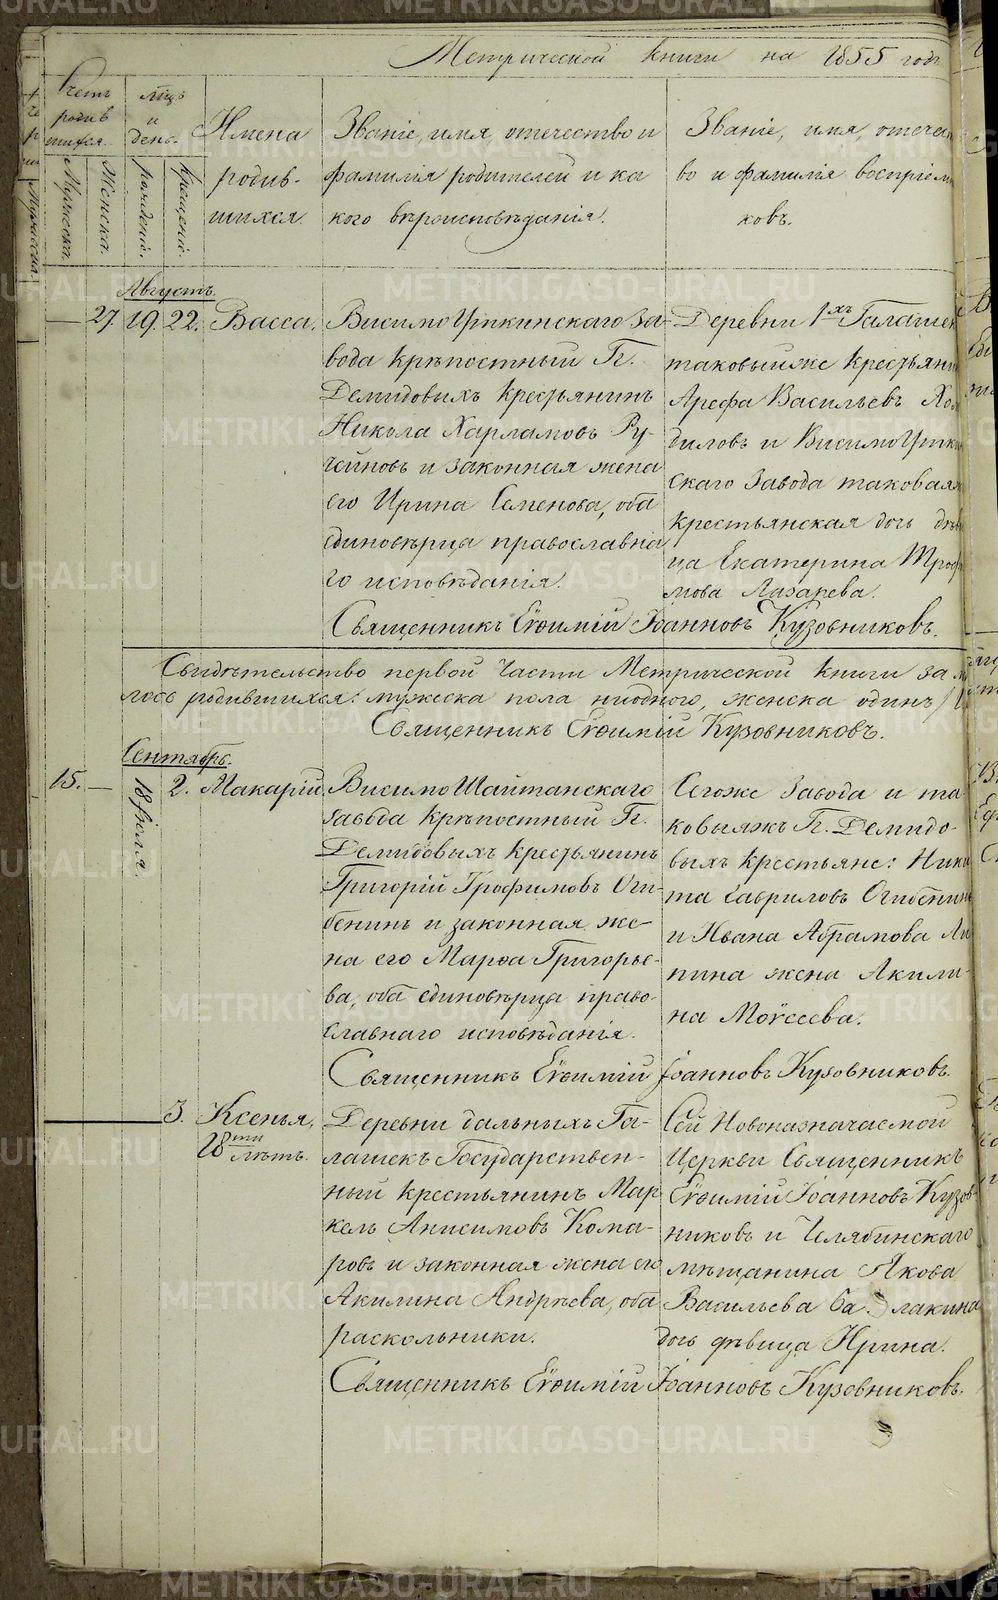 Метрической книги на 1855 годъ
Счетъ родив шихся.
Мужеска.
Женска.
мѣсяцъ и день.
рожденiя.
крещенiя.
Имена родив- шихся
Званіе, имя, отечество и
фамилія родителей и ка
кого вѣроисповѣданія.
Званіе, имя, отечес
во и фамилія воспріем
ковъ.
Августъ.
— 27. 19. 22. Васса.
Висимо Уткинскаго За-
вода крѣпостный Гг.
Демидовыхъ крестьянинъ
Никола Харламовъ Ру-
чейновъ и законная жена
его Ирина Семенова, оба
единовѣрца православна
го исповѣданія.
Деревни 1хъ Галашек
таковыйже крестьяни
Арефа Васильевъ Хол
диловъ и Висимо Утки
скаго Завода таковая
крестьянская дочь дѣв
ца Екатерина Троф
мова Лазарева.
Священникъ Евѳимій Іоанновъ Кузовниковъ.
Свидѣтельство первой Части Метрической Книги за
лось родившихся: мужеска пола ниодного, женска одинъ
Священникъ Евѳимій Кузовниковъ.
Сентябрь.
15. — 18 2. Макарій
Висимо Шайтанскаго
завода крѣпостный Гг.
Демидовыхъ крестьянинъ
Григорій Трофимовъ Оги-
бенинъ и законная же-
на его Марѳа Григорье-
ва, оба единовѣрца право-
славнаго исповѣданія.
Сегоже Завода и та
ковыяжъ Гг. Демидо-
выхъ крестьяне: Ники
та Гавриловъ Огибенин
и Ивана Абрамова Ла
пина жена Акили-
на Моѵсеева.
Священникъ Евѳимій Іоанновъ Кузовниковъ.
3. Ксенья,
28ти лѣтъ.
Деревни дальныхъ Га-
лашекъ Государствен-
ный крестьянинъ Мар
келъ Анисимовъ Кома-
ровъ и законная жена его
Акилина Андрѣева, оба
раскольники.
Сей Новоназначаемой
Церкви Священникъ
Евѳимій Іоанновъ Кузов-
никовъ и Челябинскаго
мѣщанина Якова
Васильева Ба лакина
дочь дѣвица Ирина.
Священникъ Евѳимій Іоанновъ Кузовниковъ.
METRIKI.GASO-URAL.RU